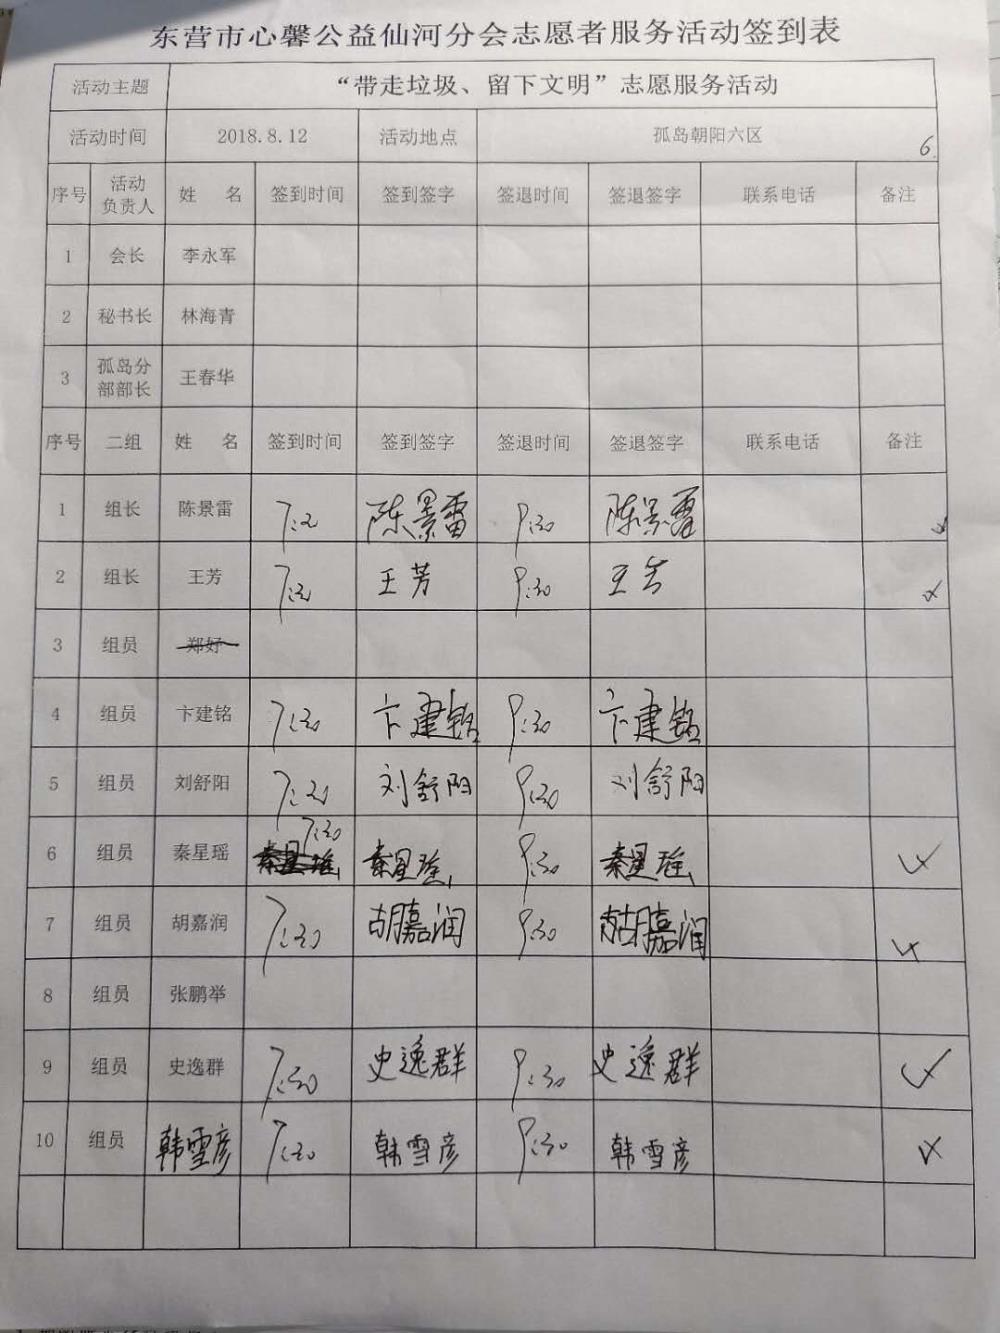 东营市心馨公益仙河分会志愿者服务活动签到表
活动主题 “带走垃圾、留下文明”志愿服务活动
活动时间 2018.8.12 活动地点 孤岛朝阳六区 6.
序号 活动负责人 姓 名 签到时间 签到签字 签退时间 签退签字 联系电话 备注
1 会长 李永军
2 秘书长 林海青
3 孤岛分部部长 王春华
序号 二组 姓 名 签到时间 签到签字 签退时间 签退签字 联系电话 备注
1 组长 陈景雷 陈景雷 9:30 陈景雷
2 组长 王芳 王芳 9:30 王芳
3 组员 郑妤
4 组员 卞建铭 7:30 卞建铭 9:30 卞建铭
5 组员 刘舒阳 刘舒阳 9:30 刘舒阳
6 组员 秦星瑶 7:30 秦星瑶 秦星瑶 9:30 秦星瑶
7 组员 胡嘉润 7:30 胡嘉润 9:30 胡嘉润
8 组员 张鹏举
9 组员 史逸群 7:30 史逸群 9:30 史逸群
10 组员 韩雪彦 7:30 韩雪彦 9:30 韩雪彦